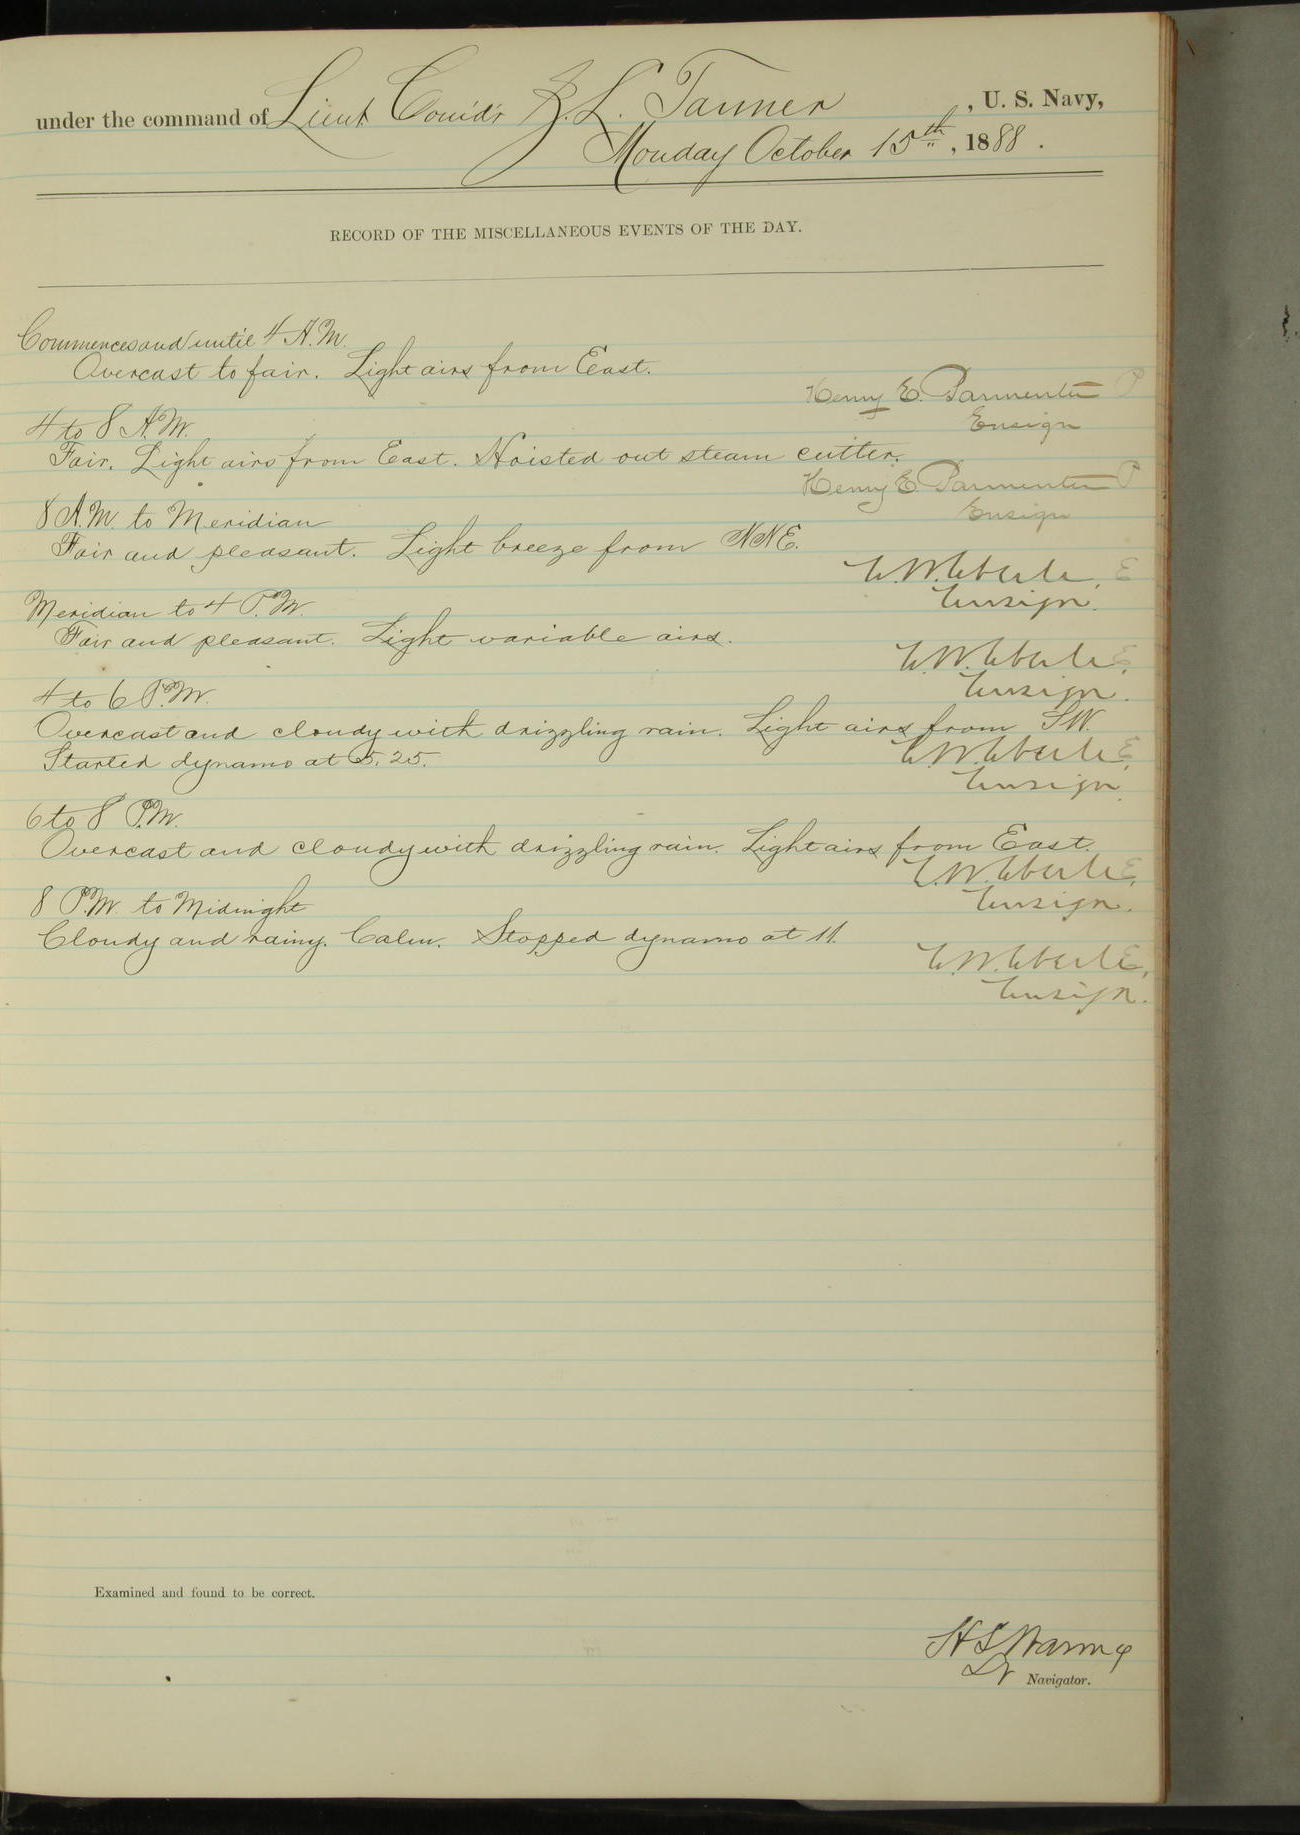 under the command of Lieut Comdr Z. L. Tanner, U. S. Navy,
Monday October 15th, 1888.
RECORD OF THE MISCELLANEOUS EVENTS OF THE DAY.
Commences and until 4 A.M.
Overcast to fair. Light airs from East.
Henry E. Parmenter P
Ensign
4 to 8 A.M.
Fair. Light airs from East. Hoisted out steam cutter.
Henry E. Parmenter P
Ensign
8 A.M. to Meridian
Fair and pleasant. Light breeze from NNE.
E.W. Eberle, E
Ensign.
Meridian to 4 P.M.
Fair and pleasant. Light variable airs.
E.W. Eberle, E
Ensign.
4 to 6 P.M.
Overcast and cloudy with drizzling rain. Light airs from SW.
Started dynamo at 5.25.
E.W. Eberle, E
Ensign.
6 to 8 P.M.
Overcast and cloudy with drizzling rain. Light airs from East.
E.W. Eberle, E
Ensign.
8 P.M. to Midnight
Cloudy and rainy. Calm. Stopped dynamo at 11.
E.W. Eberle, E
Ensign.
Examined and found to be correct.
H S Waring
Lt Navigator.